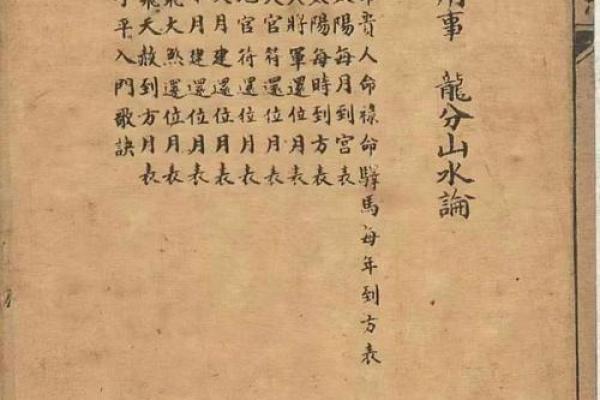 用事 龍分山水論
命貴人命祿命驛馬每年到方表
太陽每月到宮表
太陽每時到方表
大將軍還位月表
天官符還位月表
地官符還位月表
大月建還位月表
小月建還位月表
飛大煞還位月表
飛天赦到方月表
子平入門歌訣